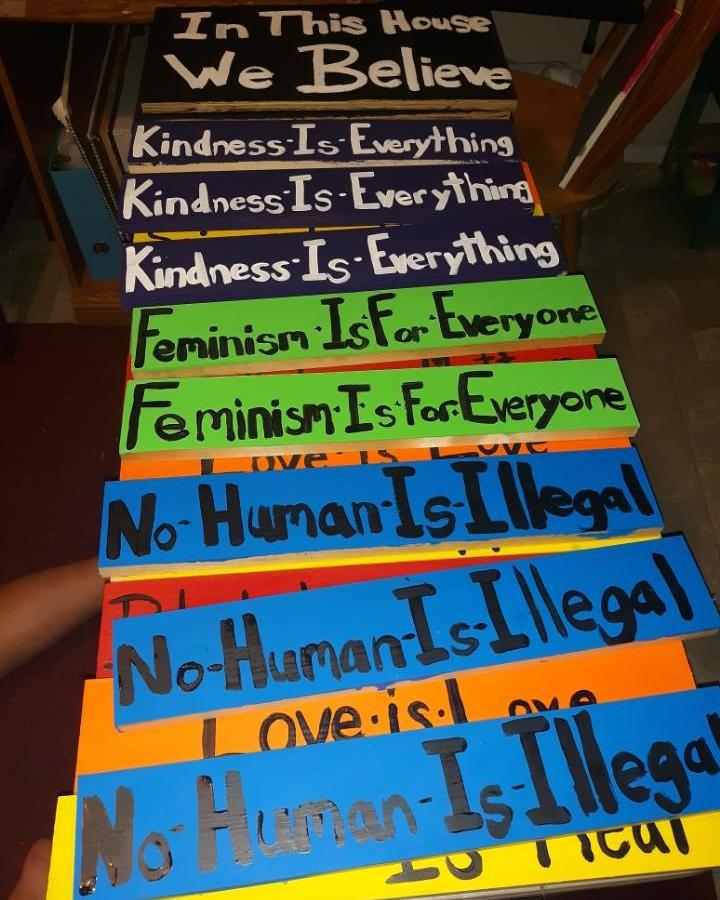 In This House
We Believe
Kindness·Is·Everything
Kindness·Is·Everything
Kindness·Is·Everything
Feminism·Is·For·Everyone
Feminism·Is·For·Everyone
Love is Love
No·Human·Is·Illegal
No·Human·Is·Illegal
Love·is·Love
No·Human·Is·Illegal
Is Real